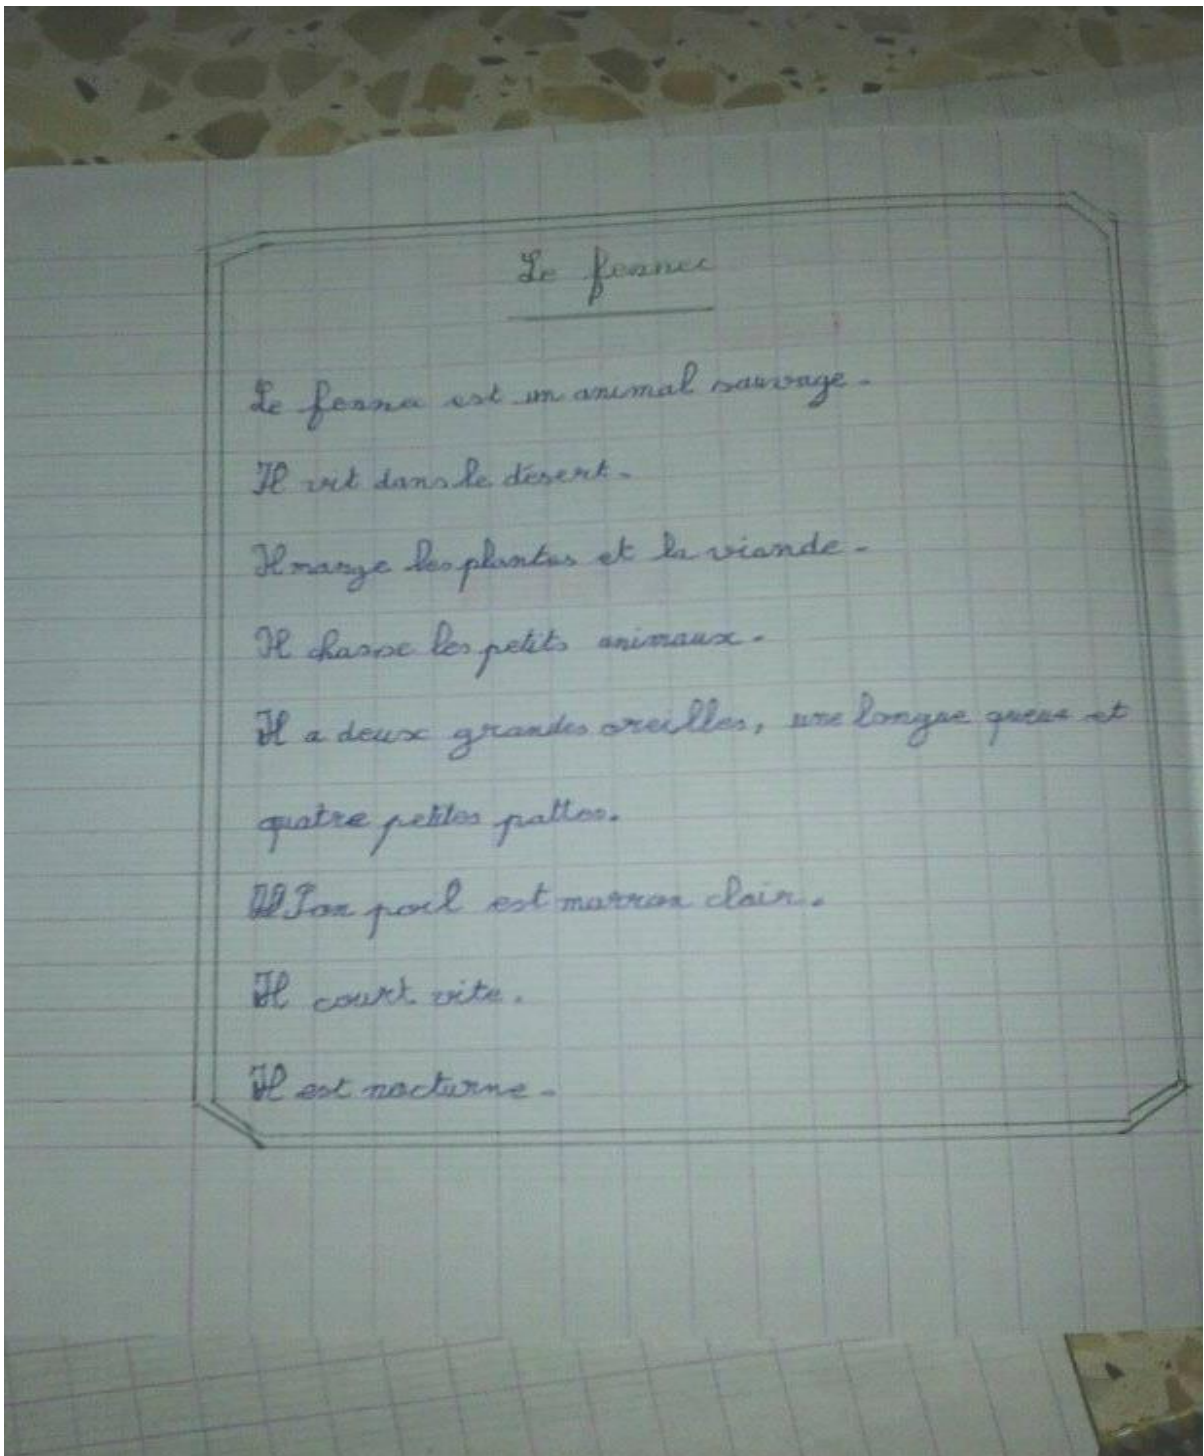 Le fennec
Le fennec est un animal sauvage.
Il vit dans le désert.
Il mange les plantes et la viande.
Il chasse les petits animaux.
Il a deux grandes oreilles, une longue queue et
quatre petites pattes.
Son poil est marron clair.
Il court vite.
Il est nocturne.